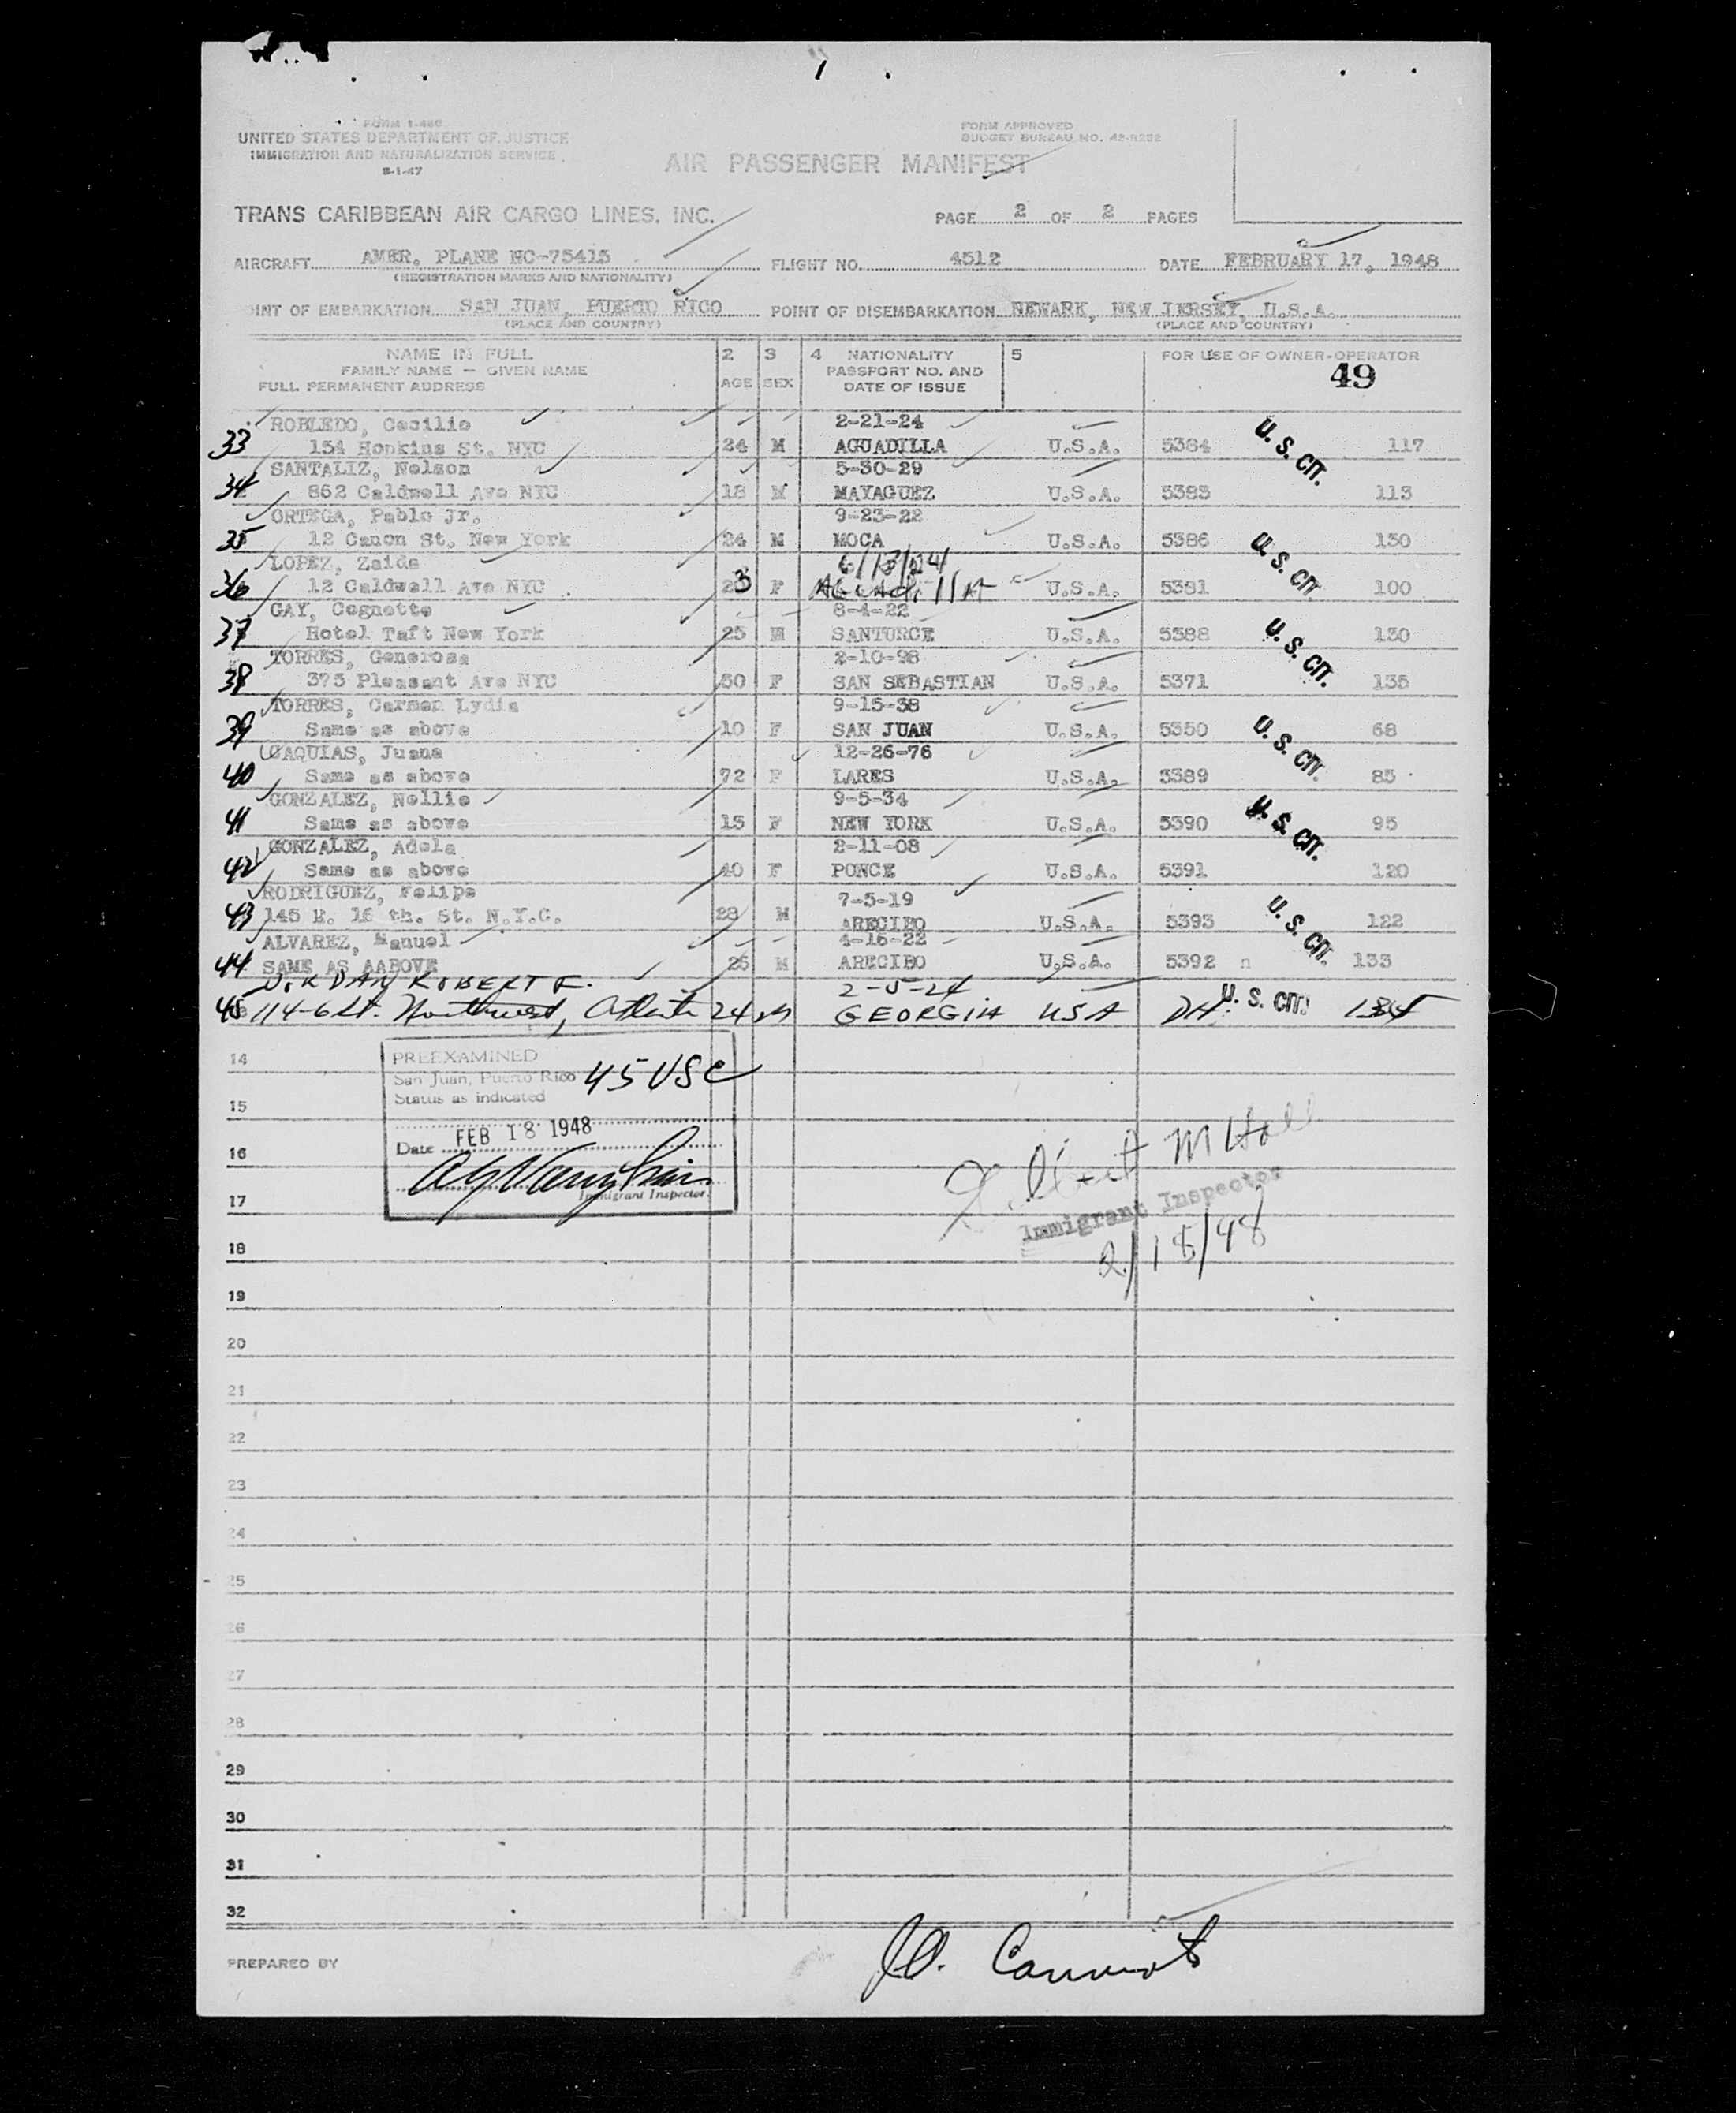 FORM I-466
UNITED STATES DEPARTMENT OF JUSTICE
IMMIGRATION AND NATURALIZATION SERVICE
8-1-47
FORM APPROVED
BUDGET BUREAU NO.
AIR PASSENGER MANIFEST
TRANS CARIBBEAN AIR CARGO LINES, INC.
PAGE 2 OF 2 PAGES
AIRCRAFT AMER. PLANE NC-75415 FLIGHT NO. 4512 DATE FEBRUARY 17, 1948
(REGISTRATION MARKS AND NATIONALITY)
OINT OF EMBARKATION SAN JUAN, PUERTO RICO POINT OF DISEMBARKATION NEWARK, NEW JERSEY, U.S.A.
(PLACE AND COUNTRY) (PLACE AND COUNTRY)
NAME IN FULL 2 3 4 NATIONALITY 5 FOR USE OF OWNER-OPERATOR
FAMILY NAME — GIVEN NAME PASSPORT NO. AND 49
FULL PERMANENT ADDRESS AGE SEX DATE OF ISSUE
ROBLEDO, Cecilio 2-21-24
33 154 Hopkins St. NYC 24 M AGUADILLA U.S.A. 5384 U. S. CIT. 117
SANTALIZ, Nelson 5-30-29
34 862 Caldwell Ave NYC 18 M MAYAGUEZ U.S.A. 5383 113
ORTEGA, Pablo Jr. 9-23-22
35 12 Canon St, New York 24 M MOCA U.S.A. 5386 U. S. CIT. 130
LOPEZ, Zaida 6/13/24
36 12 Caldwell Ave NYC 23 F AGUADILLA U.S.A. 5381 100
GAY, Cognette 8-4-22
37 Hotel Taft New York 25 M SANTURCE U.S.A. 5388 U. S. CIT. 130
TORRES, Generosa 2-10-98
38 375 Pleasant Ave NYC 50 F SAN SEBASTIAN U.S.A. 5371 135
TORRES, Carmen Lydia 9-15-38
39 Same as above 10 F SAN JUAN U.S.A. 5350 U. S. CIT. 68
CAQUIAS, Juana 12-26-76
40 Same as above 72 F LARES U.S.A. 5389 85
GONZALEZ, Nellie 9-5-34
41 Same as above 15 F NEW YORK U.S.A. 5390 U. S. CIT. 95
GONZALEZ, Adela 2-11-08
42 Same as above 40 F PONCE U.S.A. 5391 120
RODRIGUEZ, Felipe 7-5-19
43 145 E. 16 th. St. N.Y.C. 28 M ARECIBO U.S.A. 5393 U. S. CIT. 122
ALVAREZ, Manuel 4-16-22
44 SAME AS AABOVE 26 M ARECIBO U.S.A. 5392 n 133
ROBERT F. 2-5-24
45 114-6 St. Northwest, Atlanta 24 M GEORGIA USA DH. U. S. CIT.
14
PREEXAMINED
San Juan, Puerto Rico 45 USC
Status as indicated
15
Date FEB 18 1948
16
Immigrant Inspector
17
M Hall
Immigrant Inspector
2/18/48
18
19
20
21
22
23
24
25
26
27
28
29
30
31
32
PREPARED BY